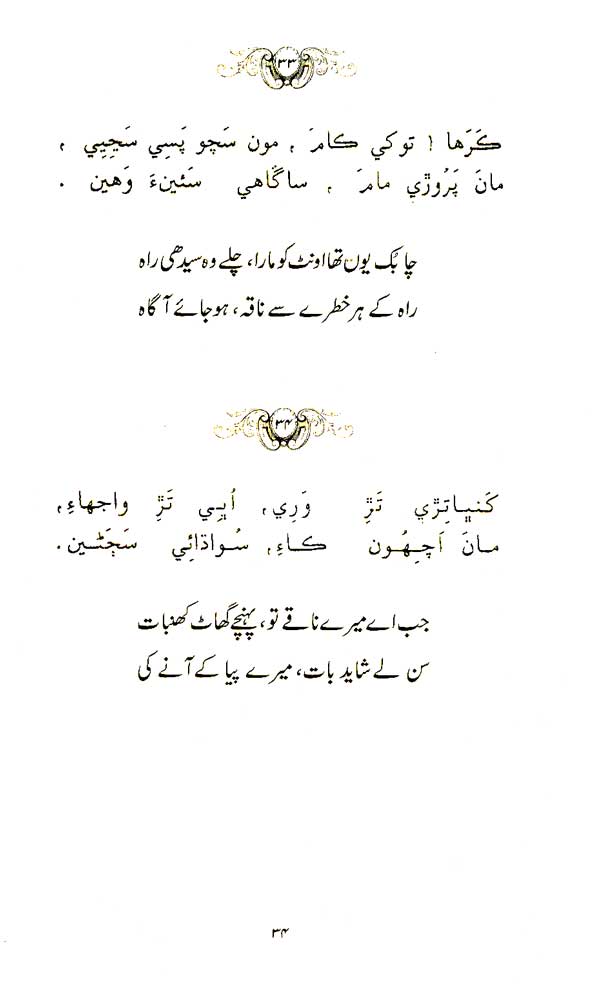 ۳۳
ڪَرَها ! توکي ڪامَ ، مون سَچو پَسِي سَڃِيِي ،
مانَ پَرُوڙي مامَ ، ساڳاهي سَئينءَ وَهين .
چابُک یوں تھا اونٹ کو مارا، چلے وہ سیدھی راہ
راہ کے ہر خطرے سے ناقہ، ہو جائے آگاہ
۳۴
کَنڀاتِڙي تَڙِ وَري، اُڀِي تَڙِ واجهاءِ،
مانَ اَچِهُون ڪاءِ، سُواڌائِي سَڄَڻَين.
جب اے میرے ناقے تو، پہنچے گھاٹ کھنبات
سن لے شاید بات، میرے پیا کے آنے کی
۳۴